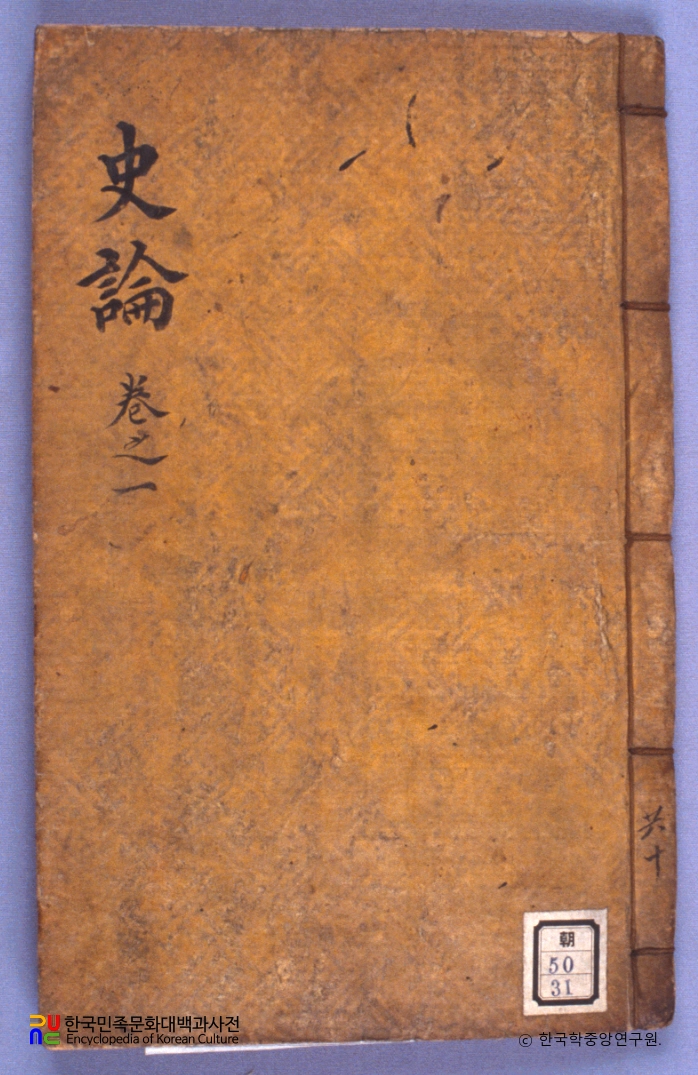 史論
卷之一
共十
朝
50
31
한국민족문화대백과사전
Encyclopedia of Korean Culture
© 한국학중앙연구원.